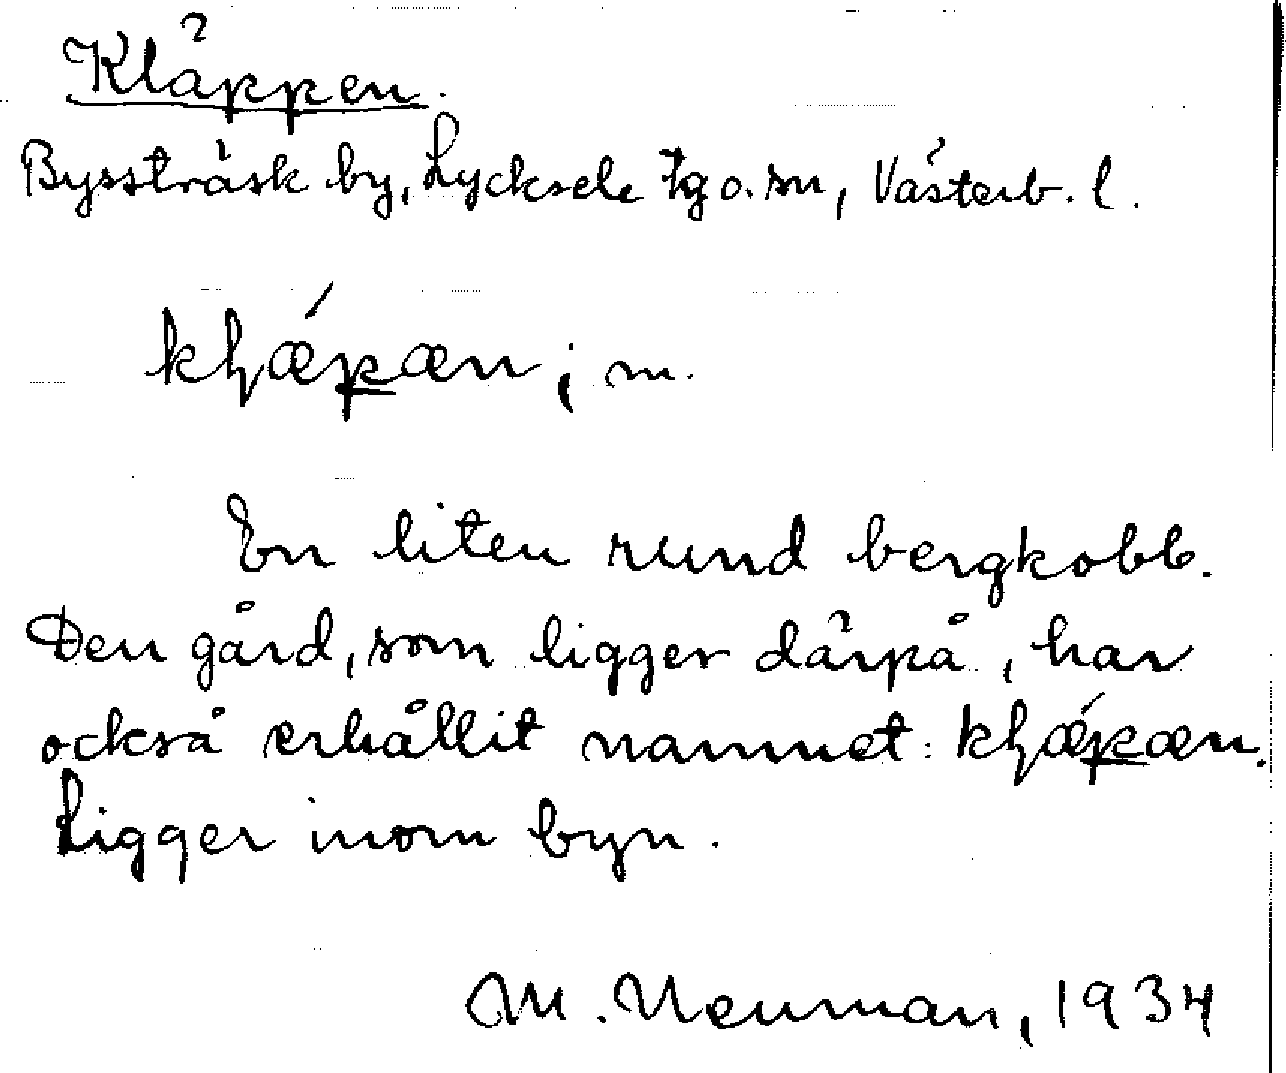 Kläppen.
Byssträsk by, Lycksele tg o. sn, Västerb. l.
kḷǽp̲æn, m.
En liten rund bergkobb.
Den gård, som ligger därpå, har
också erhållit namnet: kḷǽp̲æn.
Ligger inom byn.
M. Neuman, 1934